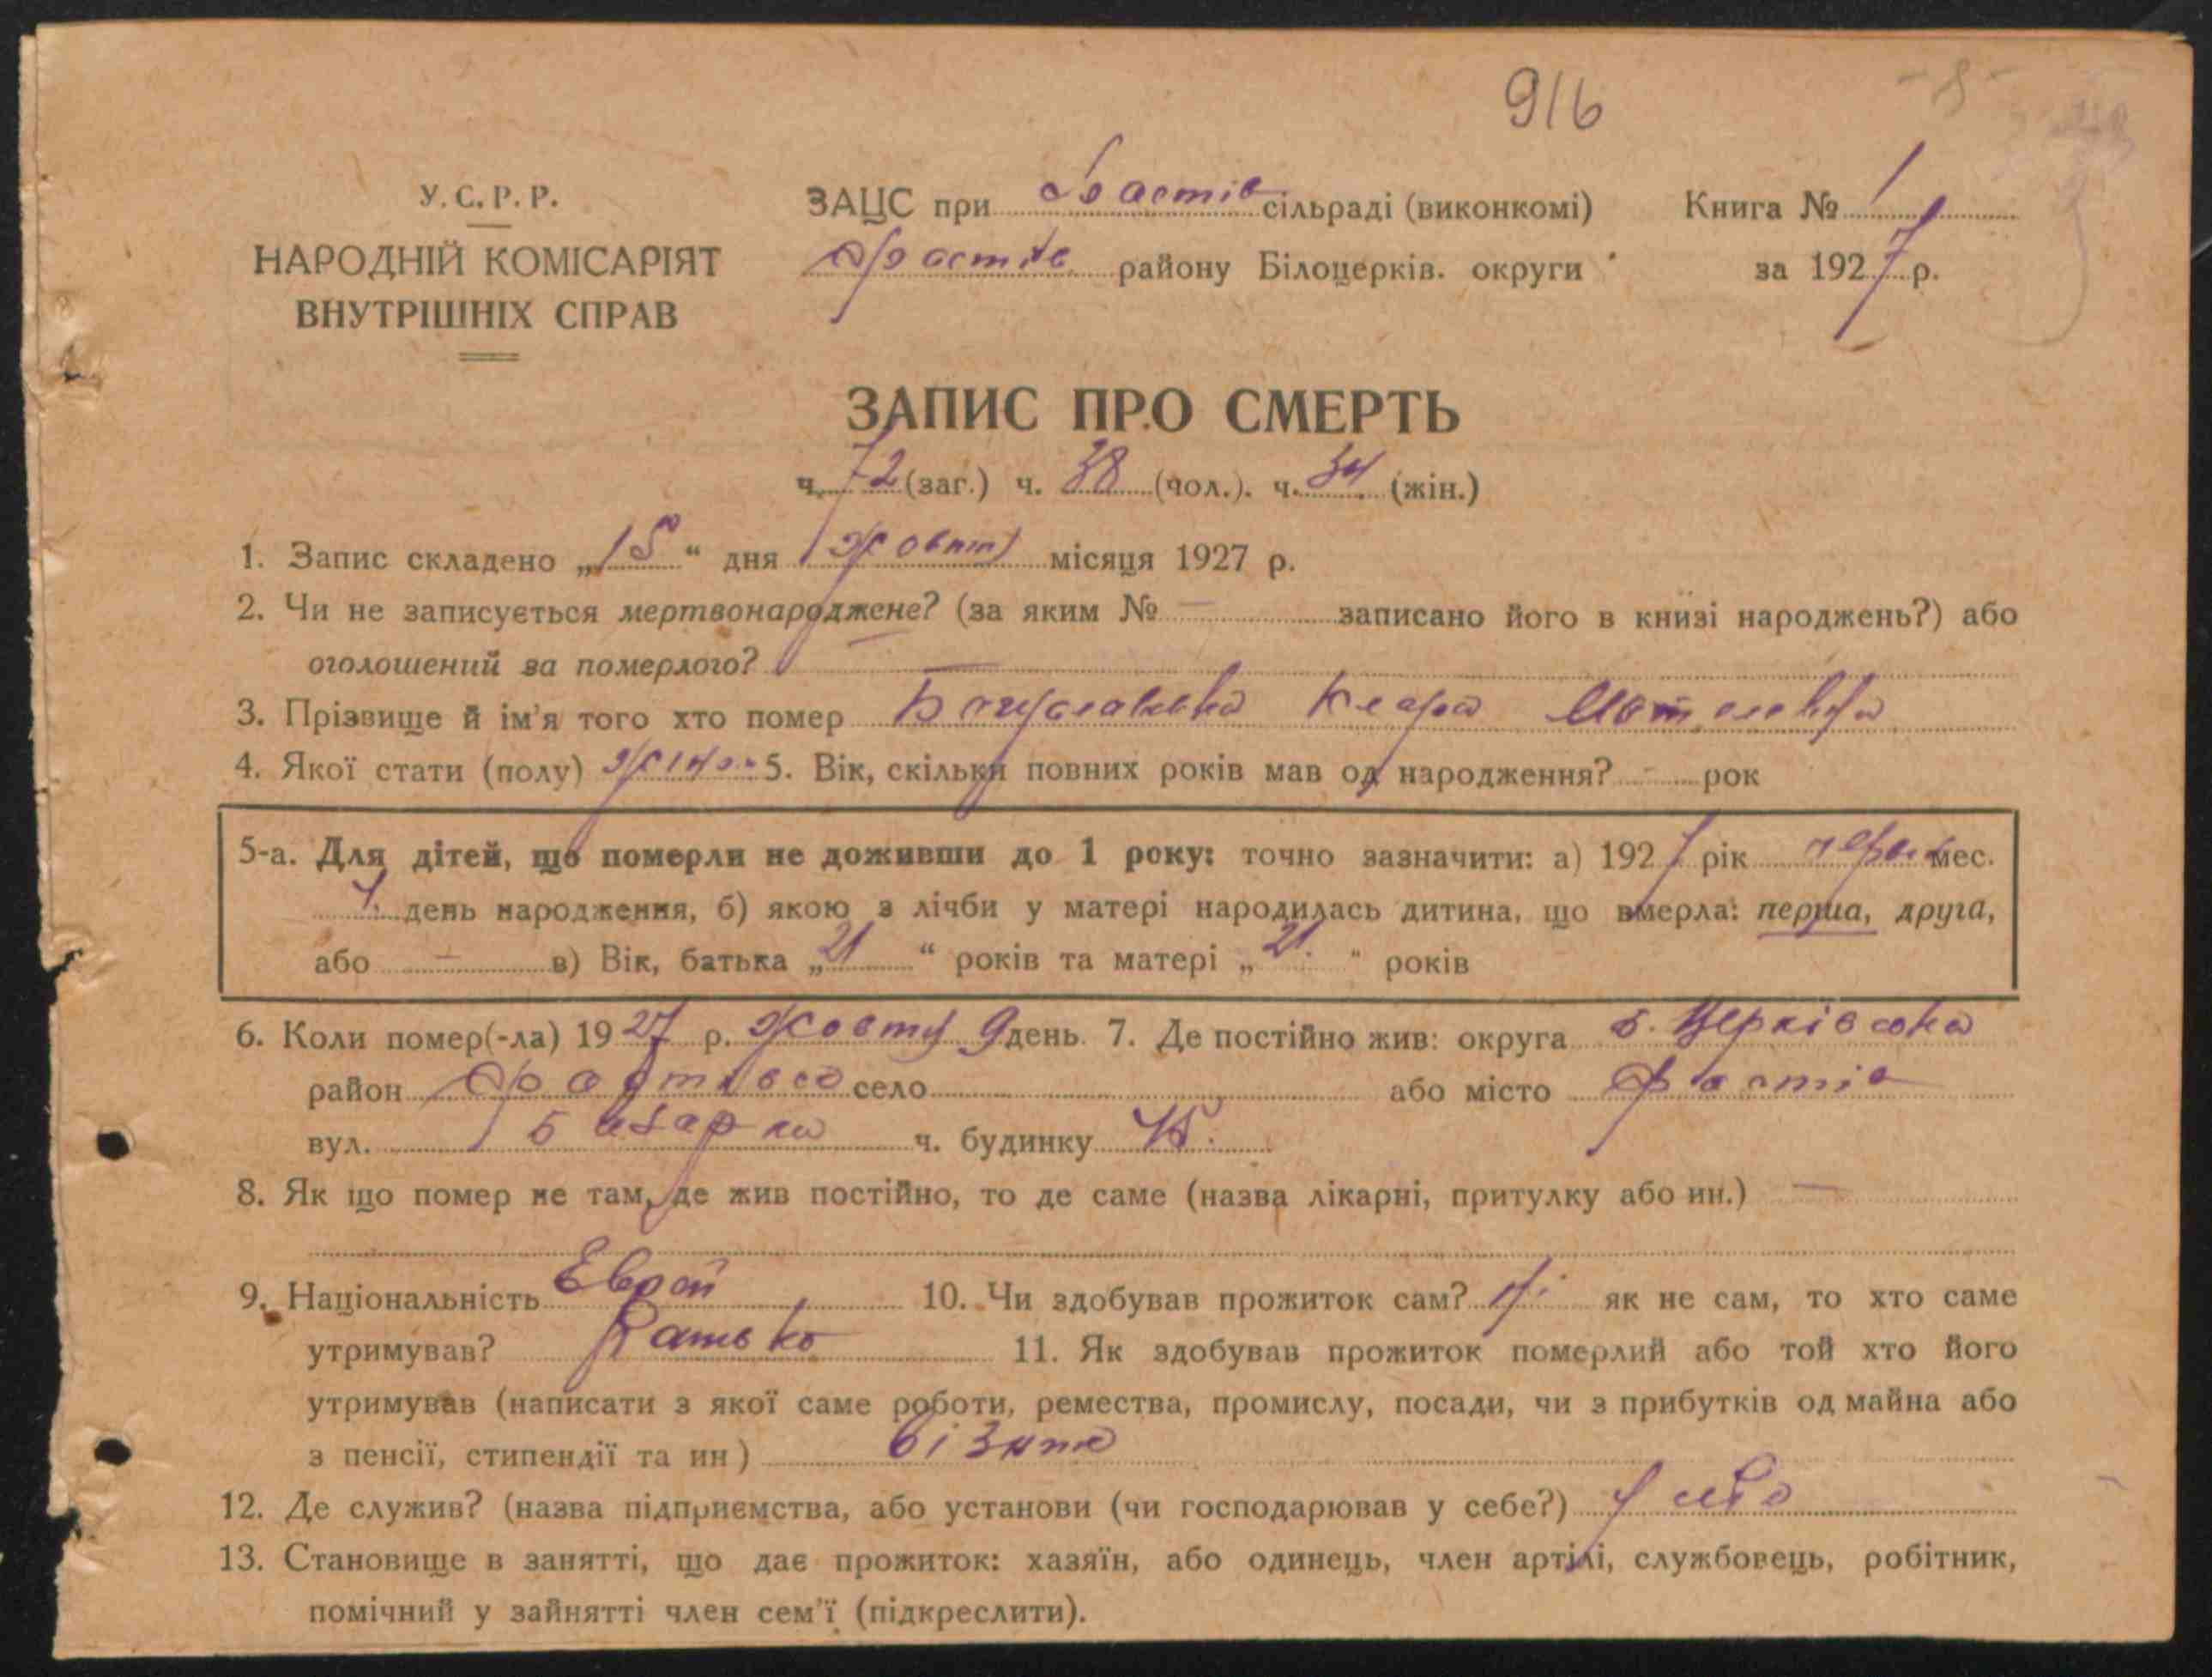 916
У. С. Р. Р.
НАРОДНІЙ КОМІСАРІЯТ
ВНУТРІШНІХ СПРАВ
ЗАЦС при Фастів сільраді (виконкомі)
Фастів району Білоцерків. округи
Книга № 1
за 1927 р.
ЗАПИС ПРО СМЕРТЬ
ч. 72 (заг.) ч. 38 (чол.). ч. 34 (жін.)
1. Запис складено „15“ дня Жовтн місяця 1927 р.
2. Чи не записується мертвонароджене? (за яким № — записано його в книзі народжень?) або
оголошений за померлого? —
3. Прізвище й ім'я того хто помер Богуславська Клара
4. Якої стати (полу) жіно. 5. Вік, скільки повних років мав од народження? - рок
5-а. Для дітей, що померли не доживши до 1 року: точно зазначити: а) 1927 рік мес.
день народження, б) якою з лічби у матері народилась дитина, що вмерла: перша, друга,
або — в) Вік, батька „21“ років та матері „21.“ років
6. Коли помер(-ла) 1927 р. Жовтн 9 день. 7. Де постійно жив: округа Б. Церківська
район Фастівсь село або місто Фастів
вул. Базарна ч. будинку
8. Як що помер не там, де жив постійно, то де саме (назва лікарні, притулку або ин.) —
9. Національність Еврей 10. Чи здобував прожиток сам? Ні як не сам, то хто саме
утримував? Батько 11. Як здобував прожиток померлий або той хто його
утримував (написати з якої саме роботи, ремества, промислу, посади, чи з прибутків од майна або
з пенсії, стипендії та ин)
12. Де служив? (назва підприємства, або установи (чи господарював у себе?) у себе
13. Становище в занятті, що дає прожиток: хазяїн, або одинець, член артілі, службовець, робітник,
помічний у зайнятті член сем'ї (підкреслити).